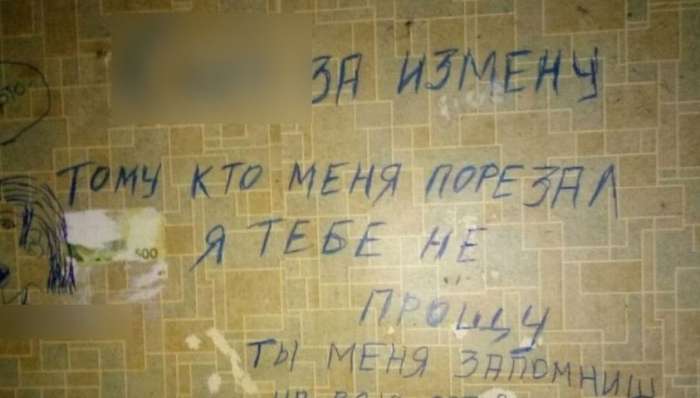 ЗА ИЗМЕНУ
ТОМУ КТО МЕНЯ ПОРЕЗАЛ
Я ТЕБЕ НЕ
500
ПРОЩУ
ТЫ МЕНЯ ЗАПОМНИШ